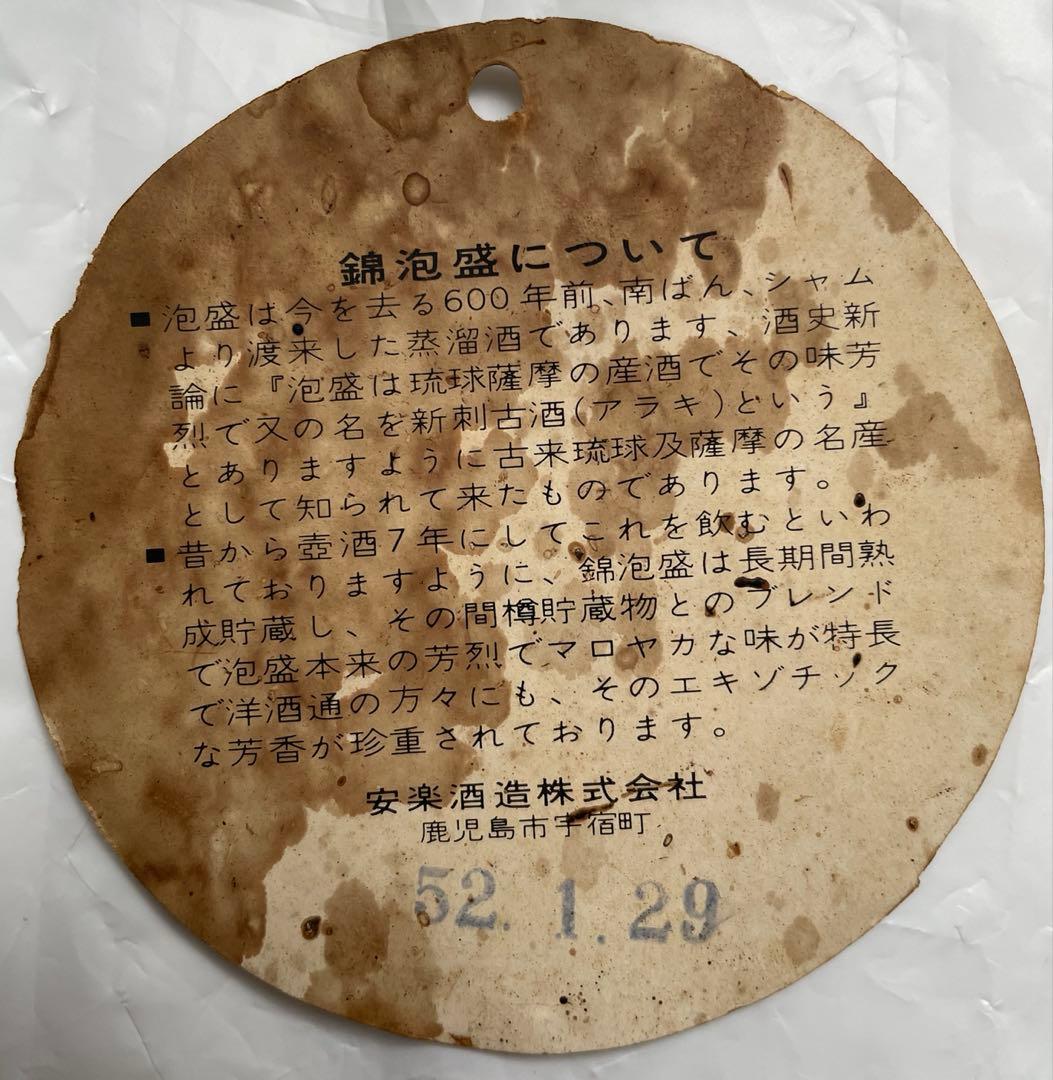 錦泡盛について
■ 泡盛は今を去る600年前、南ばん、シャム
より渡来した蒸溜酒であります、酒史新
論に『泡盛は琉球薩摩の産酒でその味芳
烈で又の名を新刺古酒(アラキ)という』
とありますように古来琉球及薩摩の名産
として知られて来たものであります。
■ 昔から壺酒7年にしてこれを飲むといわ
れておりますように、錦泡盛は長期間熟
成貯蔵し、その間樽貯蔵物とのブレンド
で泡盛本来の芳烈でマロヤカな味が特長
で洋酒通の方々にも、そのエキゾチック
な芳香が珍重されております。
安楽酒造株式会社
鹿児島市宇宿町
52.1.29